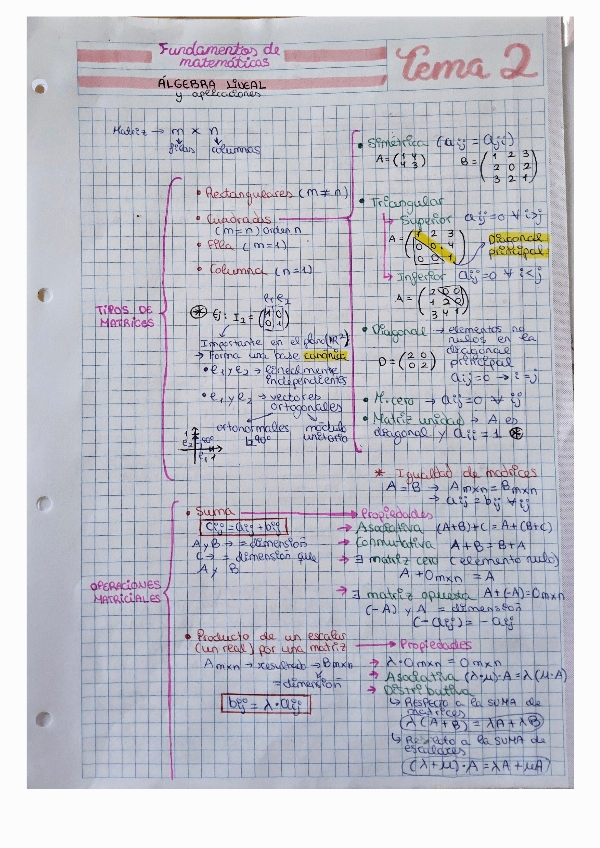 Fundamentos de
matemáticas
ÁLGEBRA LINEAL
y aplicaciones
Tema 2
Matriz → m × n
filas columnas
TIPOS DE
MATRICES
• Rectangulares (m ≠ n)
• Cuadradas
(m = n) Orden n
• Fila (m = 1)
• Columna (n = 1)
e₁ e₂
* Ej: I₂ = (1 0
0 1)
Importante en el plano (R²)
→ Forma una base canónica
• e₁ y e₂ → linealmente
independientes
• e₁ y e₂ → vectores
ortogonales
ortonormales módulo
90° unitario
1
e₂ 90°
e₁ 1
• Simétrica (aij = aji)
A = (1 4
4 3)
B = (1 2 3
2 0 2
3 2 1)
• Triangular
→ Superior aij = 0 ∀ i>j
A = (1 2 3
0 0 4
0 0 1)
Diagonal
principal
→ Inferior aij = 0 ∀ i<j
A = (2 0 0
1 2 0
3 4 1)
• Diagonal → elementos no
nulos en la
diagonal
principal
D = (2 0
0 2)
aij = 0 → i = j
• M. cero → aij = 0 ∀ ij
• Matriz unidad → A es
diagonal y aii = 1 *
* Igualdad de matrices
A = B → Amxn = Bmxn
→ aij = bij ∀ ij
OPERACIONES
MATRICIALES
• Suma → Propiedades
cij = aij + bij
A y B → = dimensión
C → = dimensión que
A y B
→ Asociativa (A+B)+C = A+(B+C)
→ Conmutativa A+B = B+A
→ ∃ matriz cero (elemento nulo)
A + 0mxn = A
→ ∃ matriz opuesta A+(-A) = 0mxn
(-A) y A = dimensión
(-aij) = -aij
• Producto de un escalar
(un real) por una matriz → Propiedades
Amxn → resultado → Bmxn
= dimensión
bij = λ · aij
→ λ · 0mxn = 0mxn
→ Asociativa (λ·μ)·A = λ(μ·A)
→ Distributiva
↳ Respecto a la SUMA de
matrices
(λ(A+B) = λA + λB)
↳ Respecto a la SUMA de
escalares
((λ+μ)·A = λA + μA)